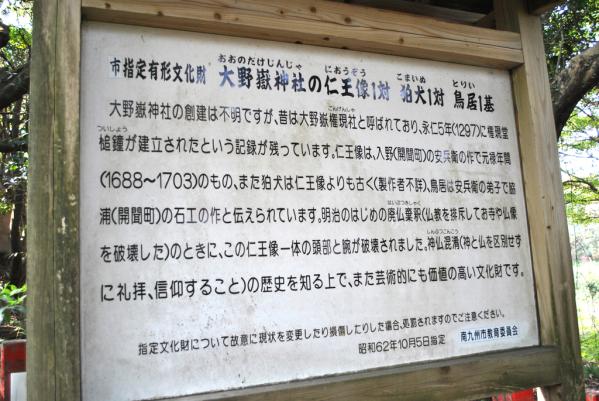 おおのだけじんじゃ におうぞう こまいぬ とりい
市指定有形文化財 大野嶽神社の仁王像1対 狛犬1対 鳥居1基
大野嶽神社の創建は不明ですが、昔は大野嶽権現社と呼ばれており、永仁5年(1297)に権現堂
槌鐘が建立されたという記録が残っています。仁王像は、入野(開聞町)の安兵衛の作で元禄年間
(1688〜1703)のもの、また狛犬は仁王像よりも古く(製作者不詳)、鳥居は安兵衛の弟子で脇
浦(開聞町)の石工の作と伝えられています。明治のはじめの廃仏棄釈(仏教を排斥してお寺や仏像
を破壊した)のときに、この仁王像一体の頭部と腕が破壊されました。神仏混淆(神と仏を区別せず
に礼拝、信仰すること)の歴史を知る上で、また芸術的にも価値の高い文化財です。
指定文化財について故意に現状を変更したり損傷したりした場合、処罰されますのでご注意ください。
昭和62年10月5日指定 南九州市教育委員会